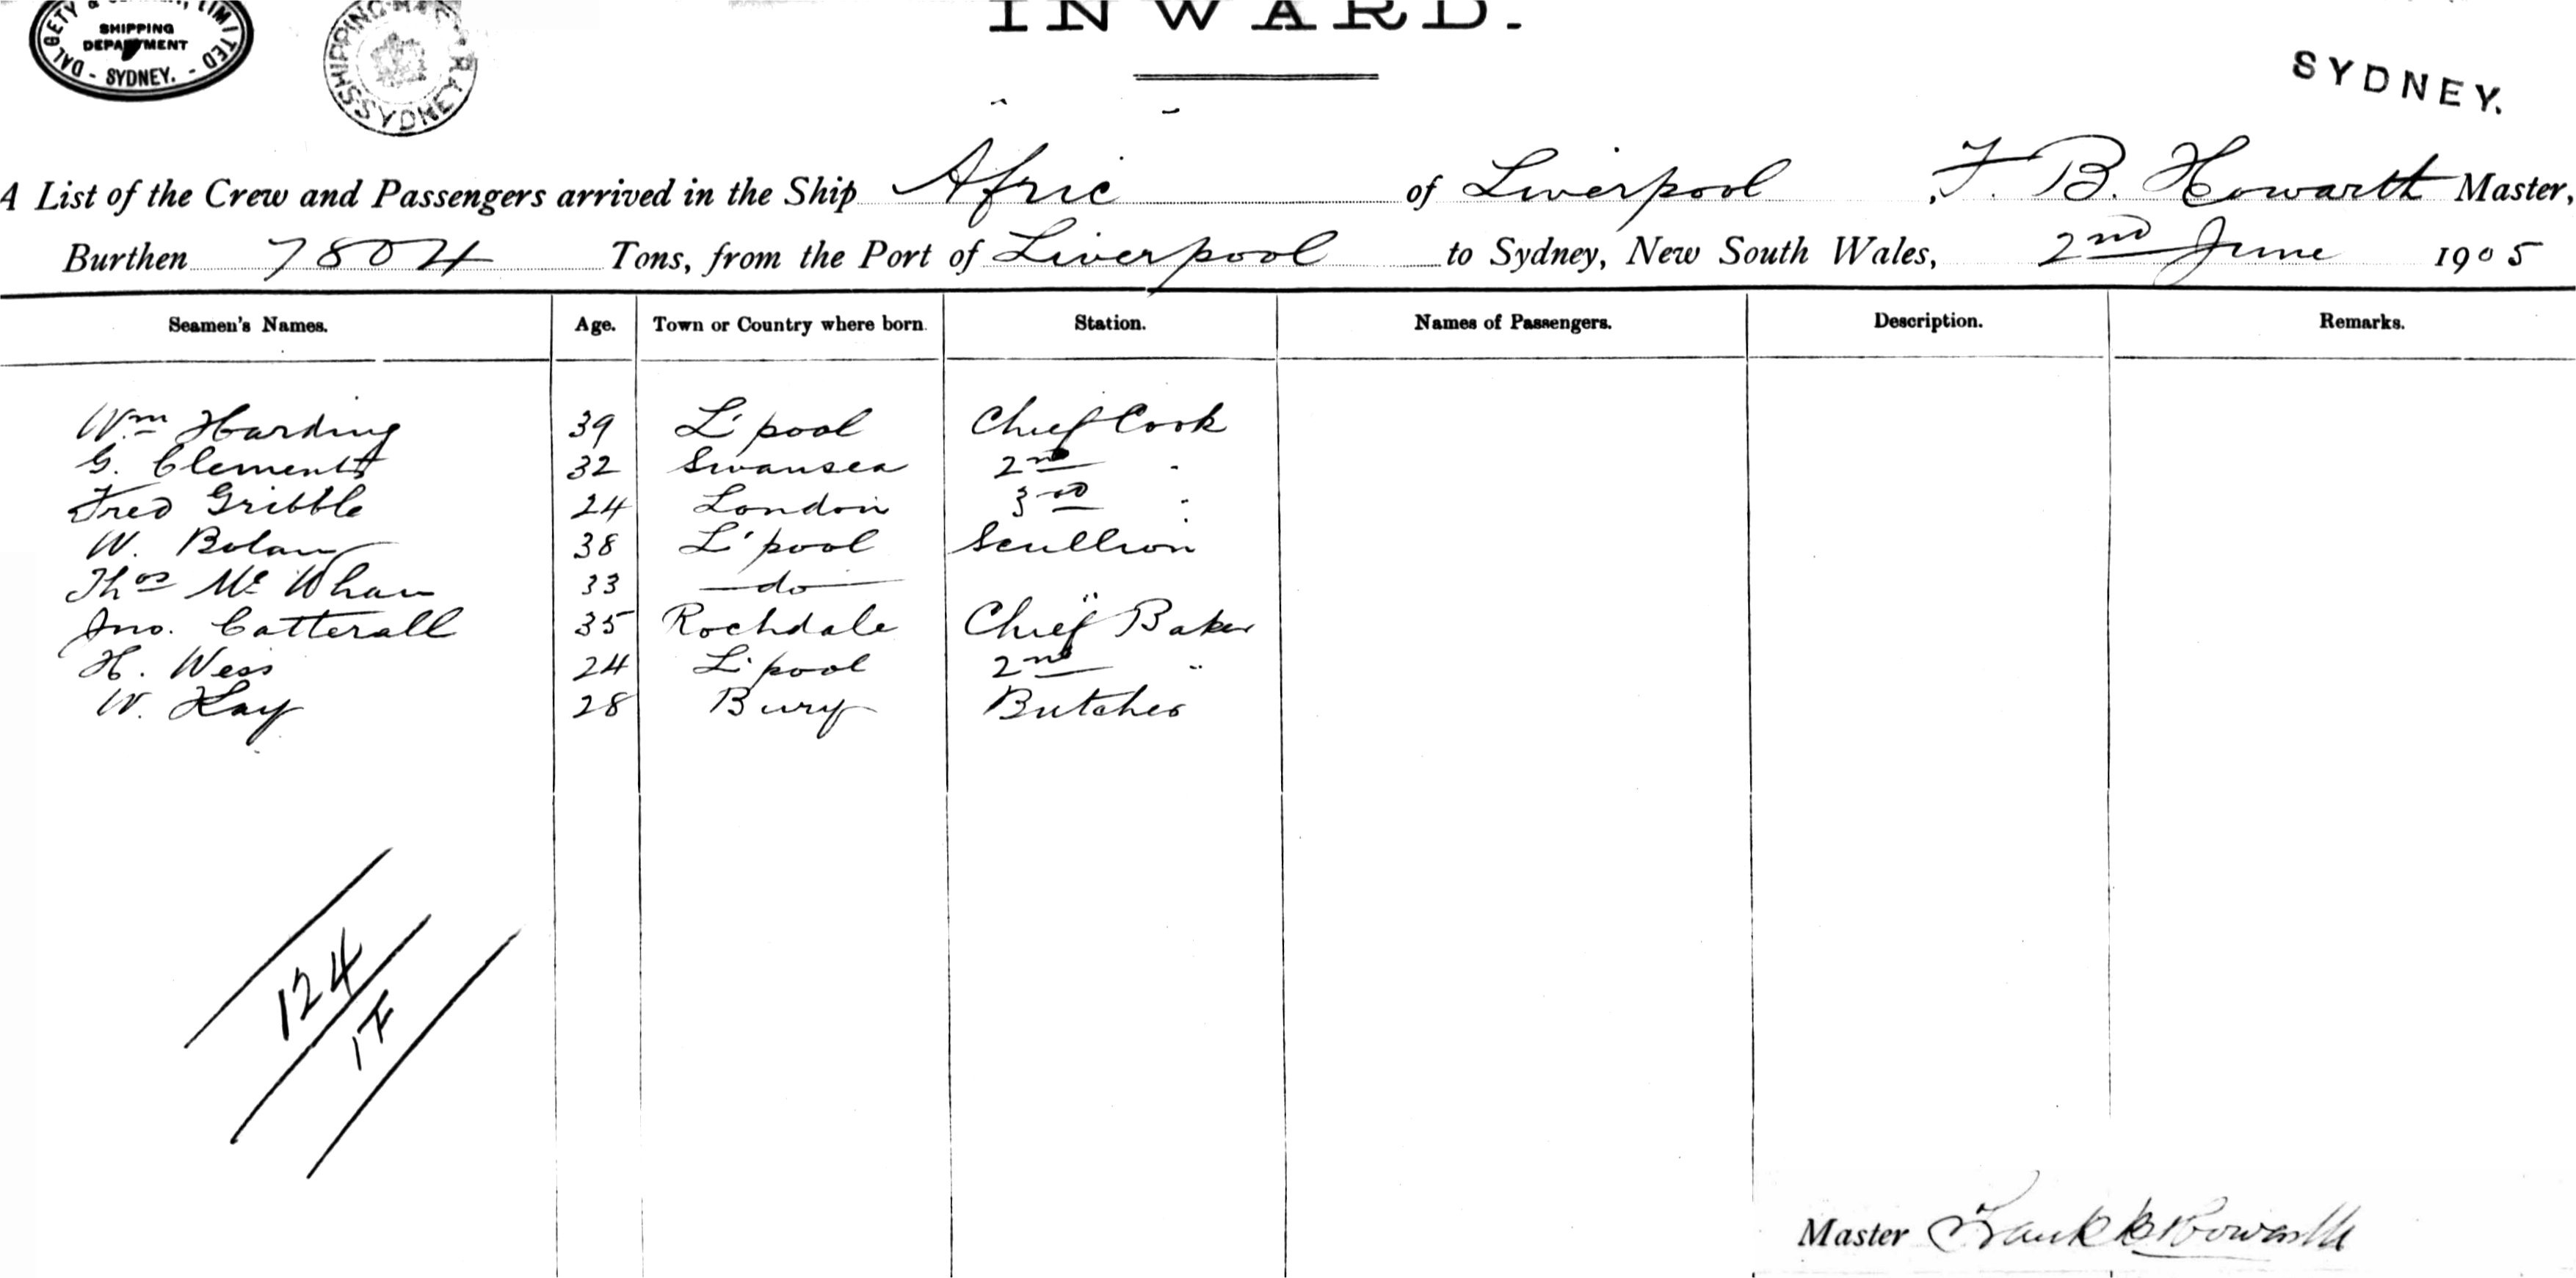 DALGETY & LIMITED
SHIPPING
DEPARTMENT
- SYDNEY. -
SHIPPING SYDNEY
INWARD.
SYDNEY.
A List of the Crew and Passengers arrived in the Ship Afric of Liverpool, F. B. Howarth Master,
Burthen 7804 Tons, from the Port of Liverpool to Sydney, New South Wales, 2nd June 1905
Seamen's Names. Age. Town or Country where born. Station. Names of Passengers. Description. Remarks.
Wm Harding 39 L'pool Chief Cook
G. Clements 32 Swansea 2nd "
Fred Gribble 24 London 3rd "
W. Bolan 38 L'pool Scullion
Thos Mc Whan 33 do "
Jno. Catterall 35 Rochdale Chief Baker
H. Wess 24 L'pool 2nd "
W. Kay 28 Bury Butcher
124
1F
Master Frank B Howarth